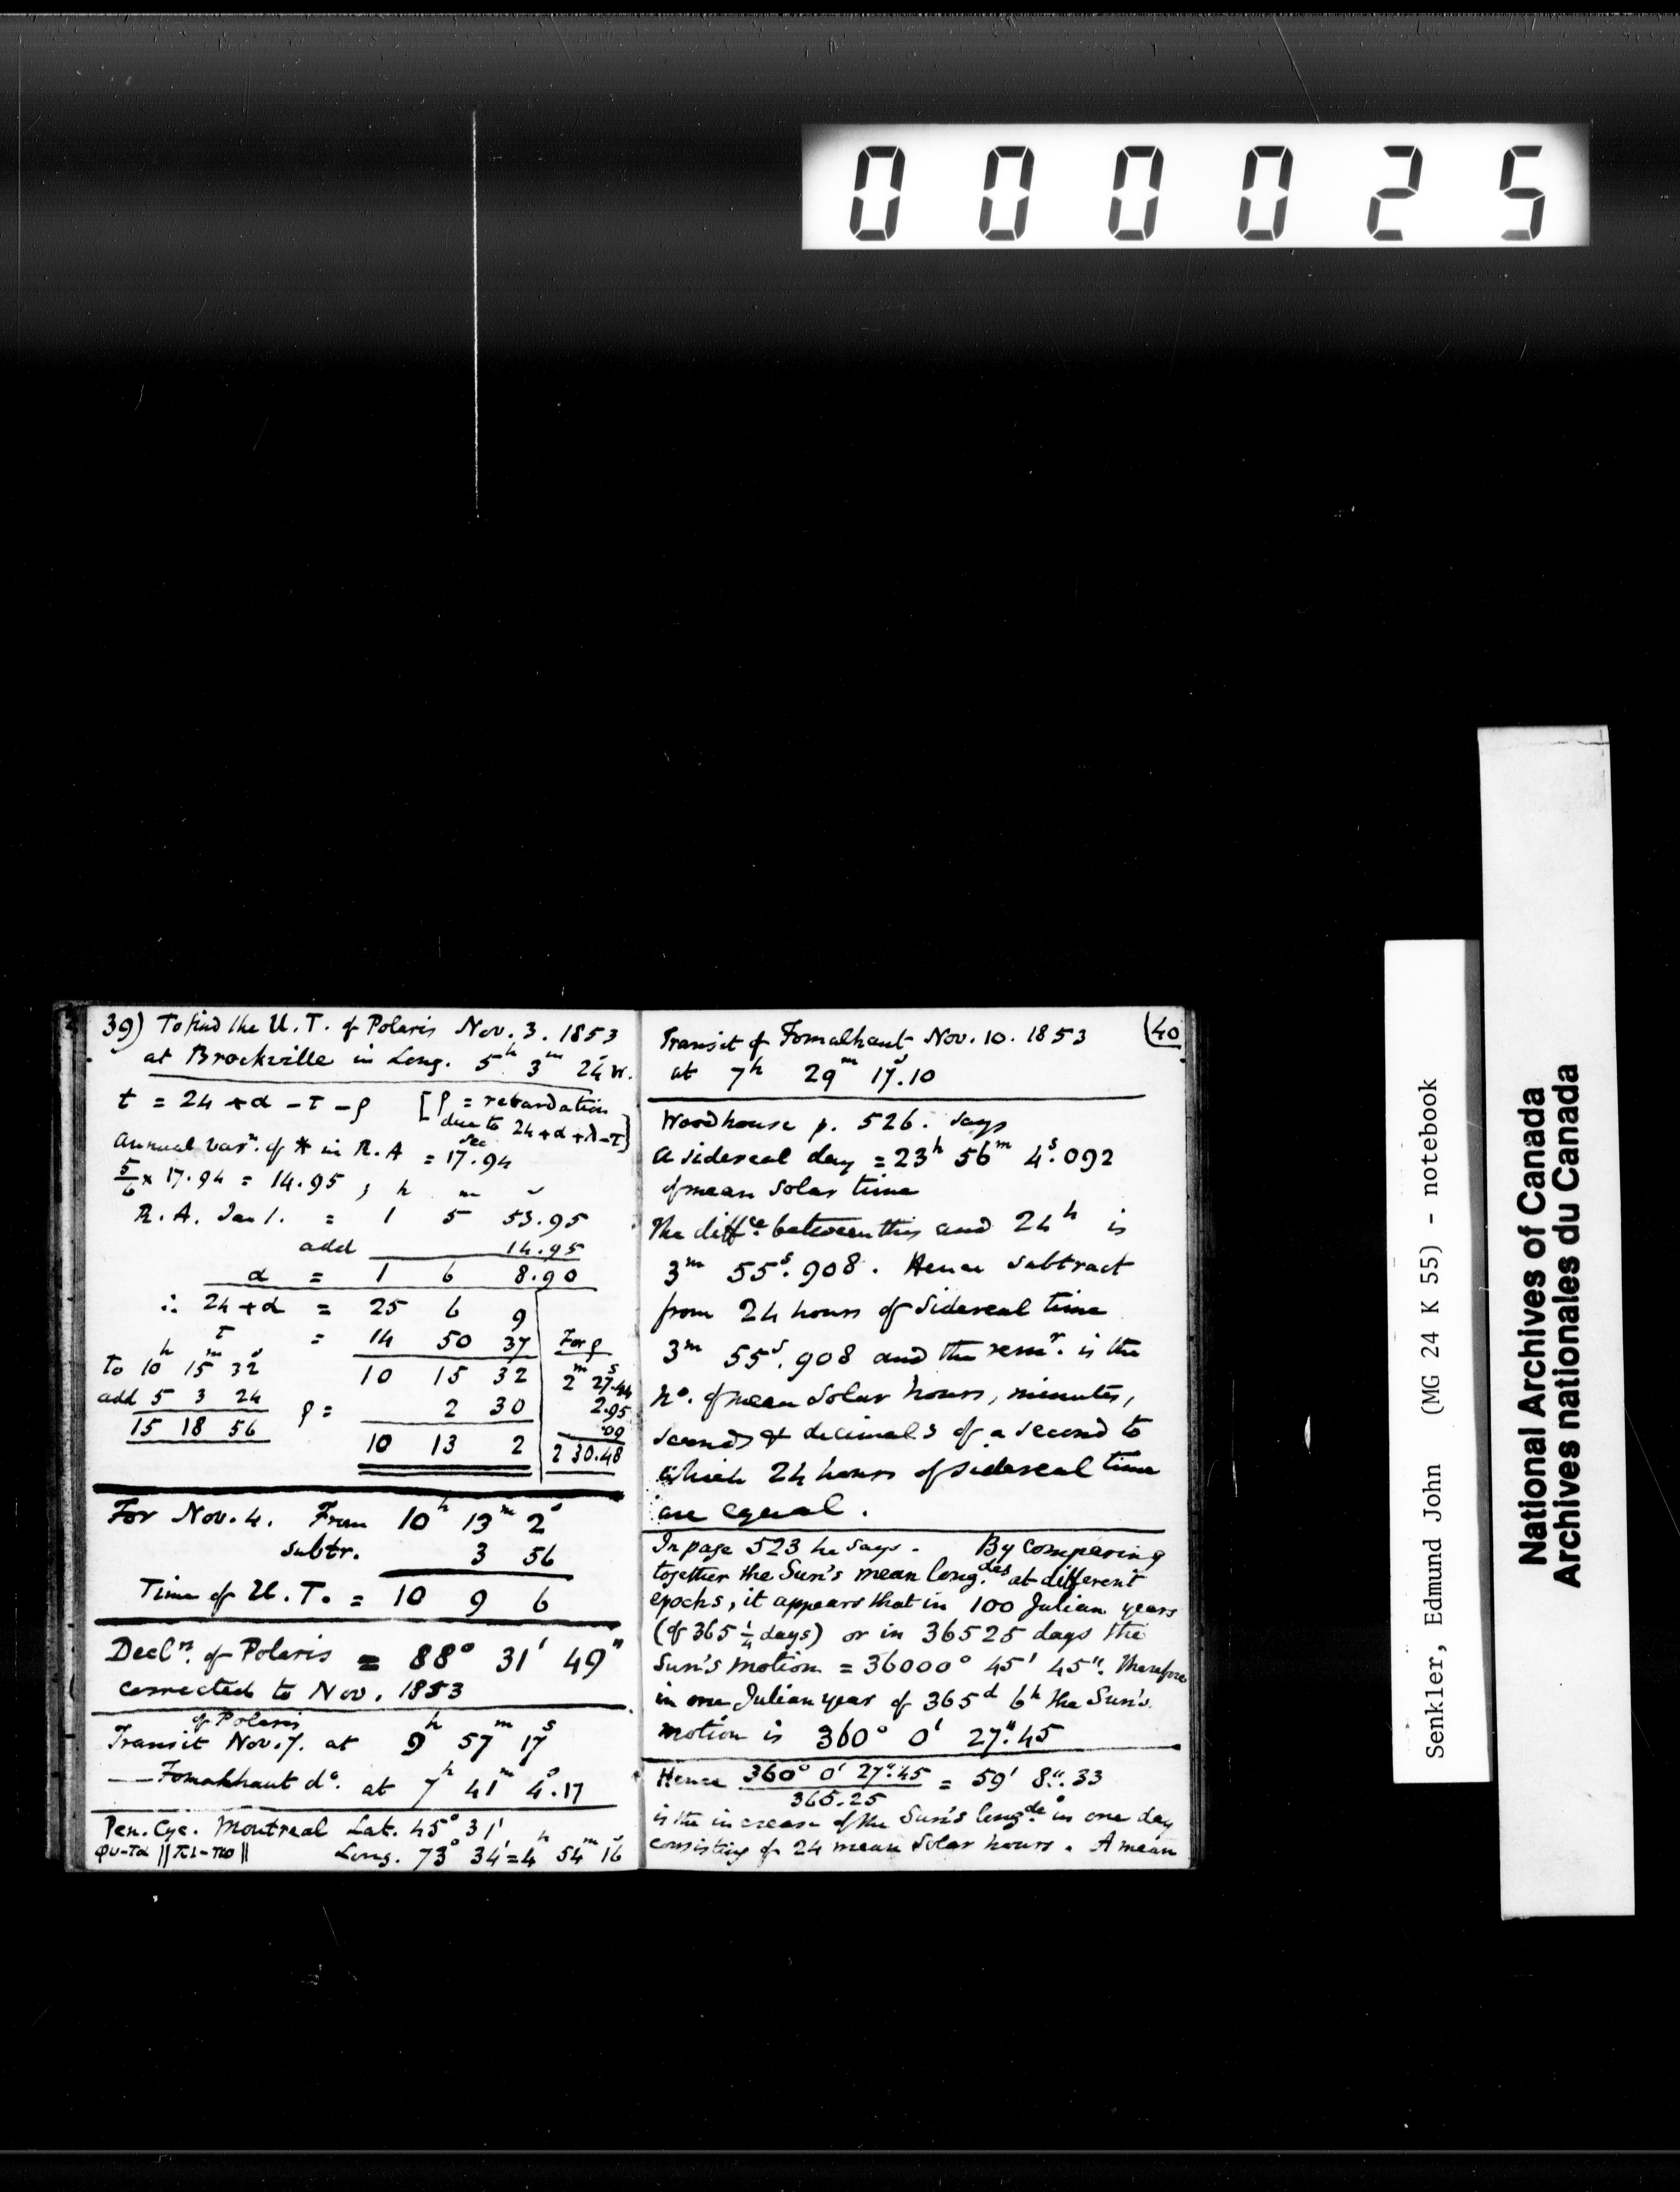 000025
39) To find the U. T. of Polaris Nov. 3. 1853
at Brockville in Long. 5h 3m 24s W.
t = 24 + α - τ - ρ [ρ = retardation
due to 24 + α + λ - τ]
Annual varn. of * in R. A = 17.94 sec
5/6 × 17.94 = 14.95 ; h m s
R. A. Jan 1. = 1 5 53.95
add 14.95
α = 1 6 8.90
∴ 24 + α = 25 6 9
τ = 14 50 37 For ρ
to 10h 15m 32s 10 15 32 2m 27.44s
add 5 3 24 ρ = 2 30 2.95
15 18 56 .09
10 13 2 2 30.48
For Nov. 4. From 10h 13m 2s
subtr. 3 56
Time of U. T. = 10 9 6
Decln. of Polaris = 88° 31' 49"
corrected to Nov. 1853
of Polaris
Transit Nov. 7. at 9h 57m 17s
— Fomalhaut do. at 7h 41m 4s.17
Pen. Cyc. Montreal Lat. 45° 31'
Long. 73° 34' = 4h 54m 16s
(40
Transit of Fomalhaut Nov. 10. 1853
at 7h 29m 17s.10
Woodhouse p. 526. says
a sidereal day = 23h 56m 4s.092
of mean solar time
The diffce. between this and 24h is
3m 55s.908. Hence subtract
from 24 hours of sidereal time
3m 55s.908 and the remr. is the
no. of mean solar hours, minutes,
seconds & decimals of a second to
which 24 hours of sidereal time
are equal.
In page 523 he says. By comparing
together the Sun's mean long.des at different
epochs, it appears that in 100 Julian years
(of 365 1/4 days) or in 36525 days the
Sun's motion = 36000° 45' 45". Therefore
in one Julian year of 365d 6h the Sun's
motion is 360° 0' 27".45
Hence 360° 0' 27".45 / 365.25 = 59' 8".33
is the increase of the Sun's longde. in one day
consisting of 24 mean solar hours. A mean
Senkler, Edmund John (MG 24 K 55) - notebook
National Archives of Canada
Archives nationales du Canada